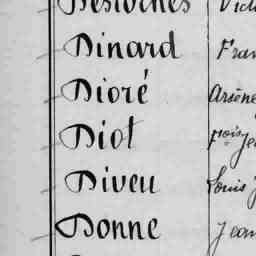 Dinard Fran
Dioré Arsène
Diot Fçois Je
Diveu Louis J
Donne Jean